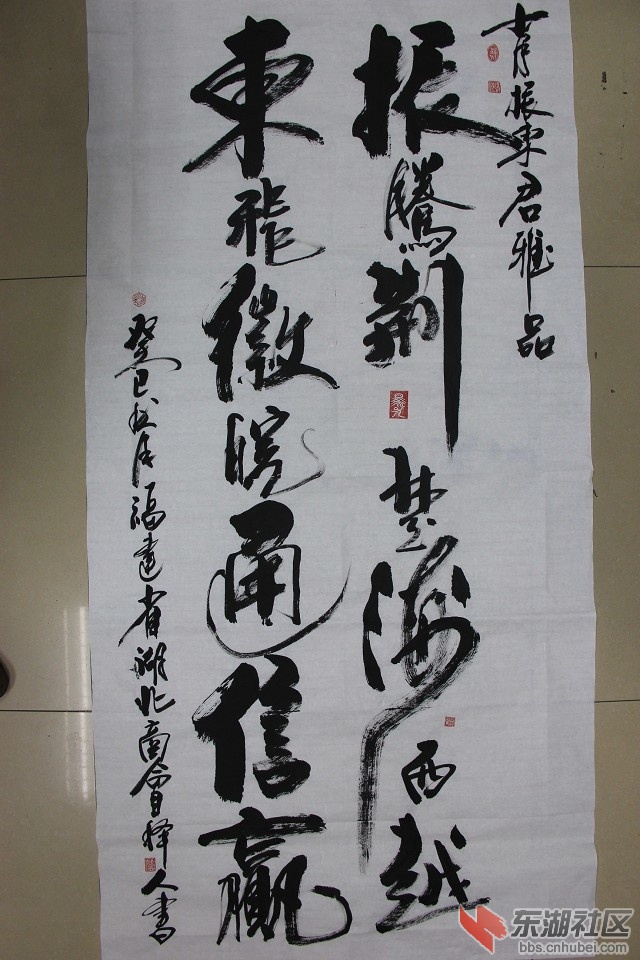 振東君雅品
振騰荆楚海西越
東飛徽皖通信贏
癸巳秋月福建省湖北商會人書
东湖社区
bbs.cnhubei.com